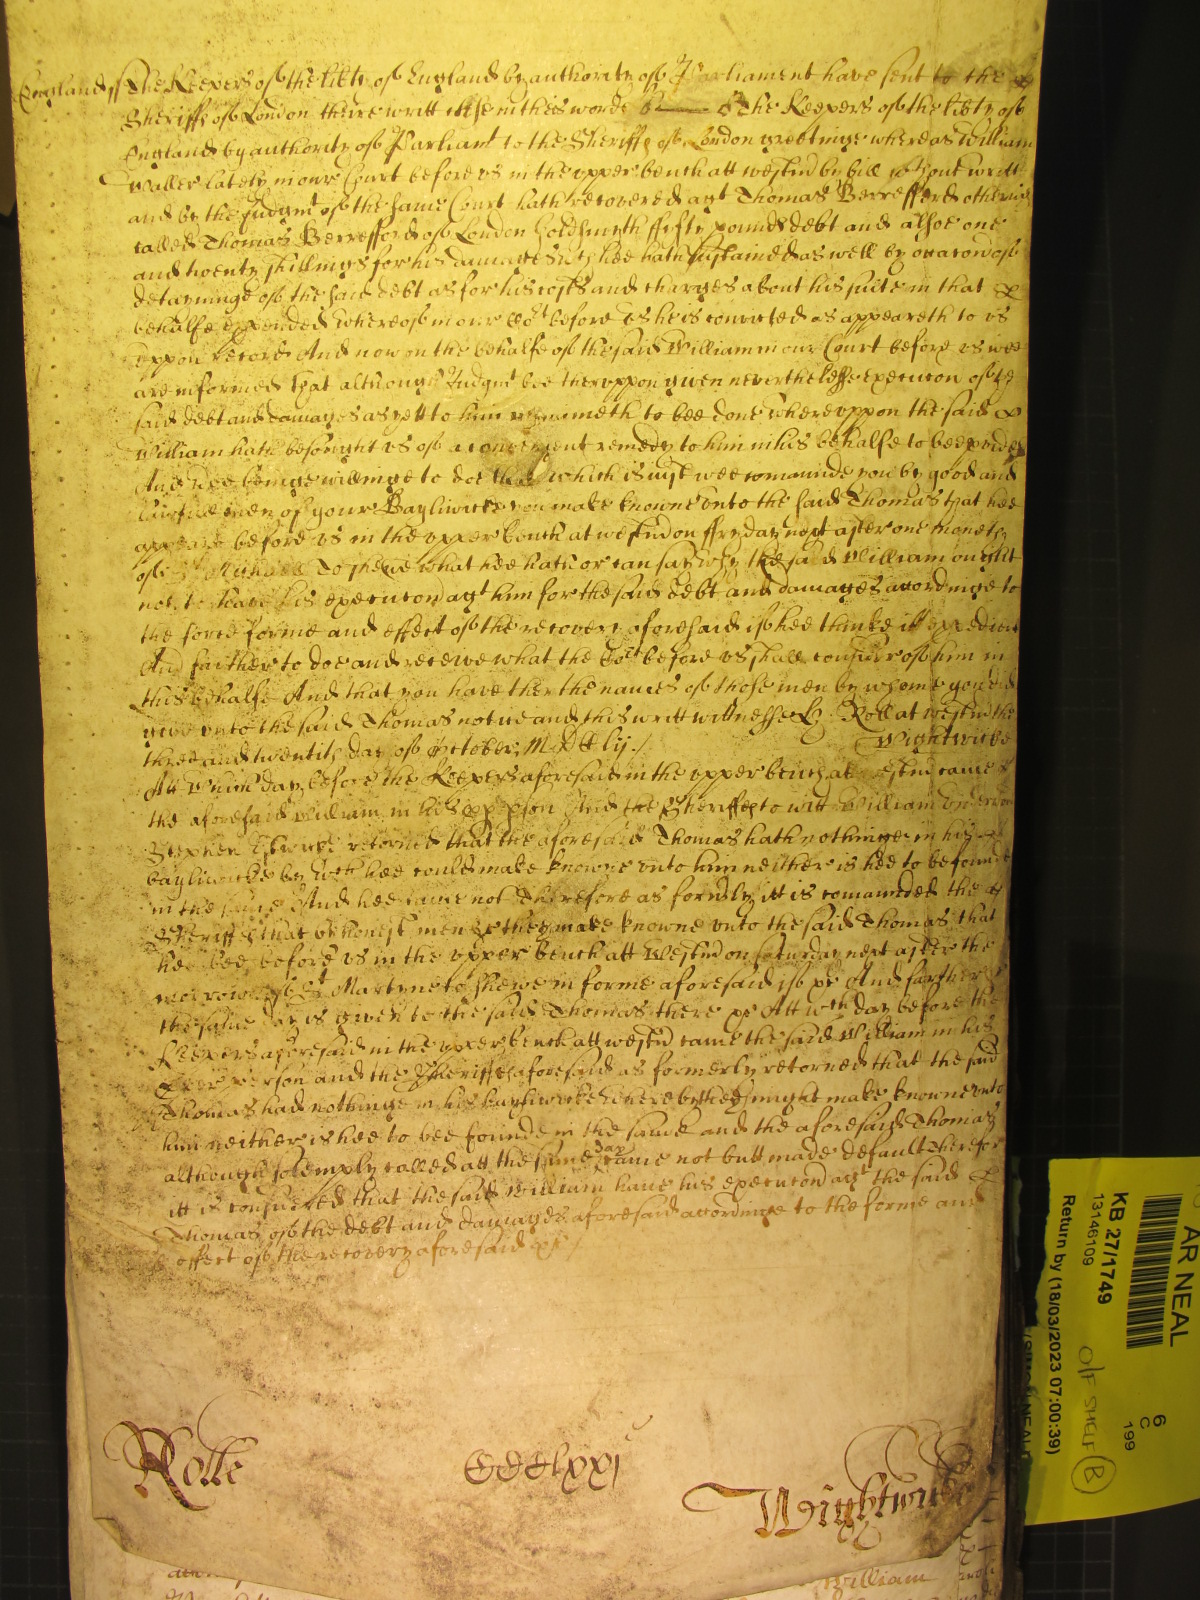 England ss The Keepers of the lib[er]ty of England by authority of Parliament have sent to the
Sheriffs of London theire writt close in theis words ss The Keepers of the lib[er]ty of
England by authority of Parliam[en]t to the Sheriffs of London greetinge whereas William
Waller lately in our Court before us in the upper bench att Westm[inster] by bill w[i]thout writt
and by the Judgm[en]t of the same Court hath recovered ag[ain]t Thomas Berrefford otherwise
called Thomas Berrefford of London Goldsmyth fifty pounds debt and alsoe one
and twenty shillings for his damages w[hi]ch hee hath sustained as well by occac[i]on of
detayninge of the said debt as for his costs and charges about his suite in that
behalfe expended whereof in our Co[ur]t before us he is convicted as appeareth to us
uppon record And now on the behalfe of the said William in our Court before us wee
are informed that although Judgm[en]t bee theruppon given neverthelesse execucon of the
said debt and damages as yett to him remaineth to bee done whereuppon the said
William hath besought us of a convenient remedy to him in his behalfe to bee p[ro]vided
And wee beinge willinge to doe that which is just wee com[m]aunde you by good and
lawfull men of your Bayliwicke you make knowne unto the said Thomas that hee
appeare before us in the upper bench at Westm[inster] on ffryday next after one moneth
of St Michaell To shewe what hee hath or can say why the said William ought
not to have his execucon ag[ain]t him for the said debt and damages accordinge to
the force forme and effect of the recovery aforesaid if hee thinke itt expedient
And further to doe and receive what the Co[ur]t before us shall consider of him in
this behalfe And that you have ther the names of those men by whome you did
give unto the said Thomas notice and this writt wittnesse H: Roll at Westm[inster] the
three and twentith day of October, MDClij./
Wightwicke
Att which day before the Keepers aforesaid in the upper bench att Westm[inster] came
the aforesaid William in his p[ro]p[er] p[er]son And the Sheriffes to witt William Underwood
Stephen retorned that the aforesaid Thomas hath nothinge in his
bayliwicke by w[hi]ch hee could make knowne unto him neither is hee to be founde
in the same And hee came not Therefore as form[er]ly itt is comaunded the
Sheriffs that by honest men they make knowne unto the said Thomas that
hee bee before us in the upper bench att Westm[inster] on Saturday next after the
morrow of St Martyne to shewe in forme aforesaid if &c And farther
the same day is given to the said Thomas there &c Att w[hi]ch day before the
Keepers aforesaid in the upper bench att Westm[inster] came the said William in his
p[ro]per person and the Sheriffs aforesaid as formerly retorned that the said
Thomas had nothinge in his bayliwicke whereby hee might make knowne unto
him neither is hee to bee founde in the same and the aforesaid Thomas
although solemply called att the same day came not butt made default Therefore
itt is considered that the said William have his execucon ag[ain]t the said
Thomas of the debt and damages aforesaid accordinge to the forme and
effect of the recovery aforesaid &c /
Rolle CCCClxxj Wightwicke
William
AR NEAL
KB 27/1749
13146109
Return by (18/03/2023 07:00:39)
6
C
199
O/F SHELF B